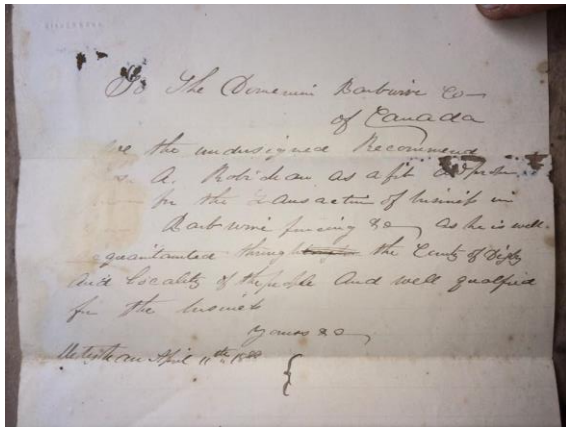 To The Domenion Barbwire Co
of Canada
we the undersigned Recommend
A. Robideau as a fit person
for the Transaction of busines in
Barbwire fencing &c as he is well
quaintanted through the County of Digby
and Locality of the people And well qualified
for the busines
Yours &c
April 11th